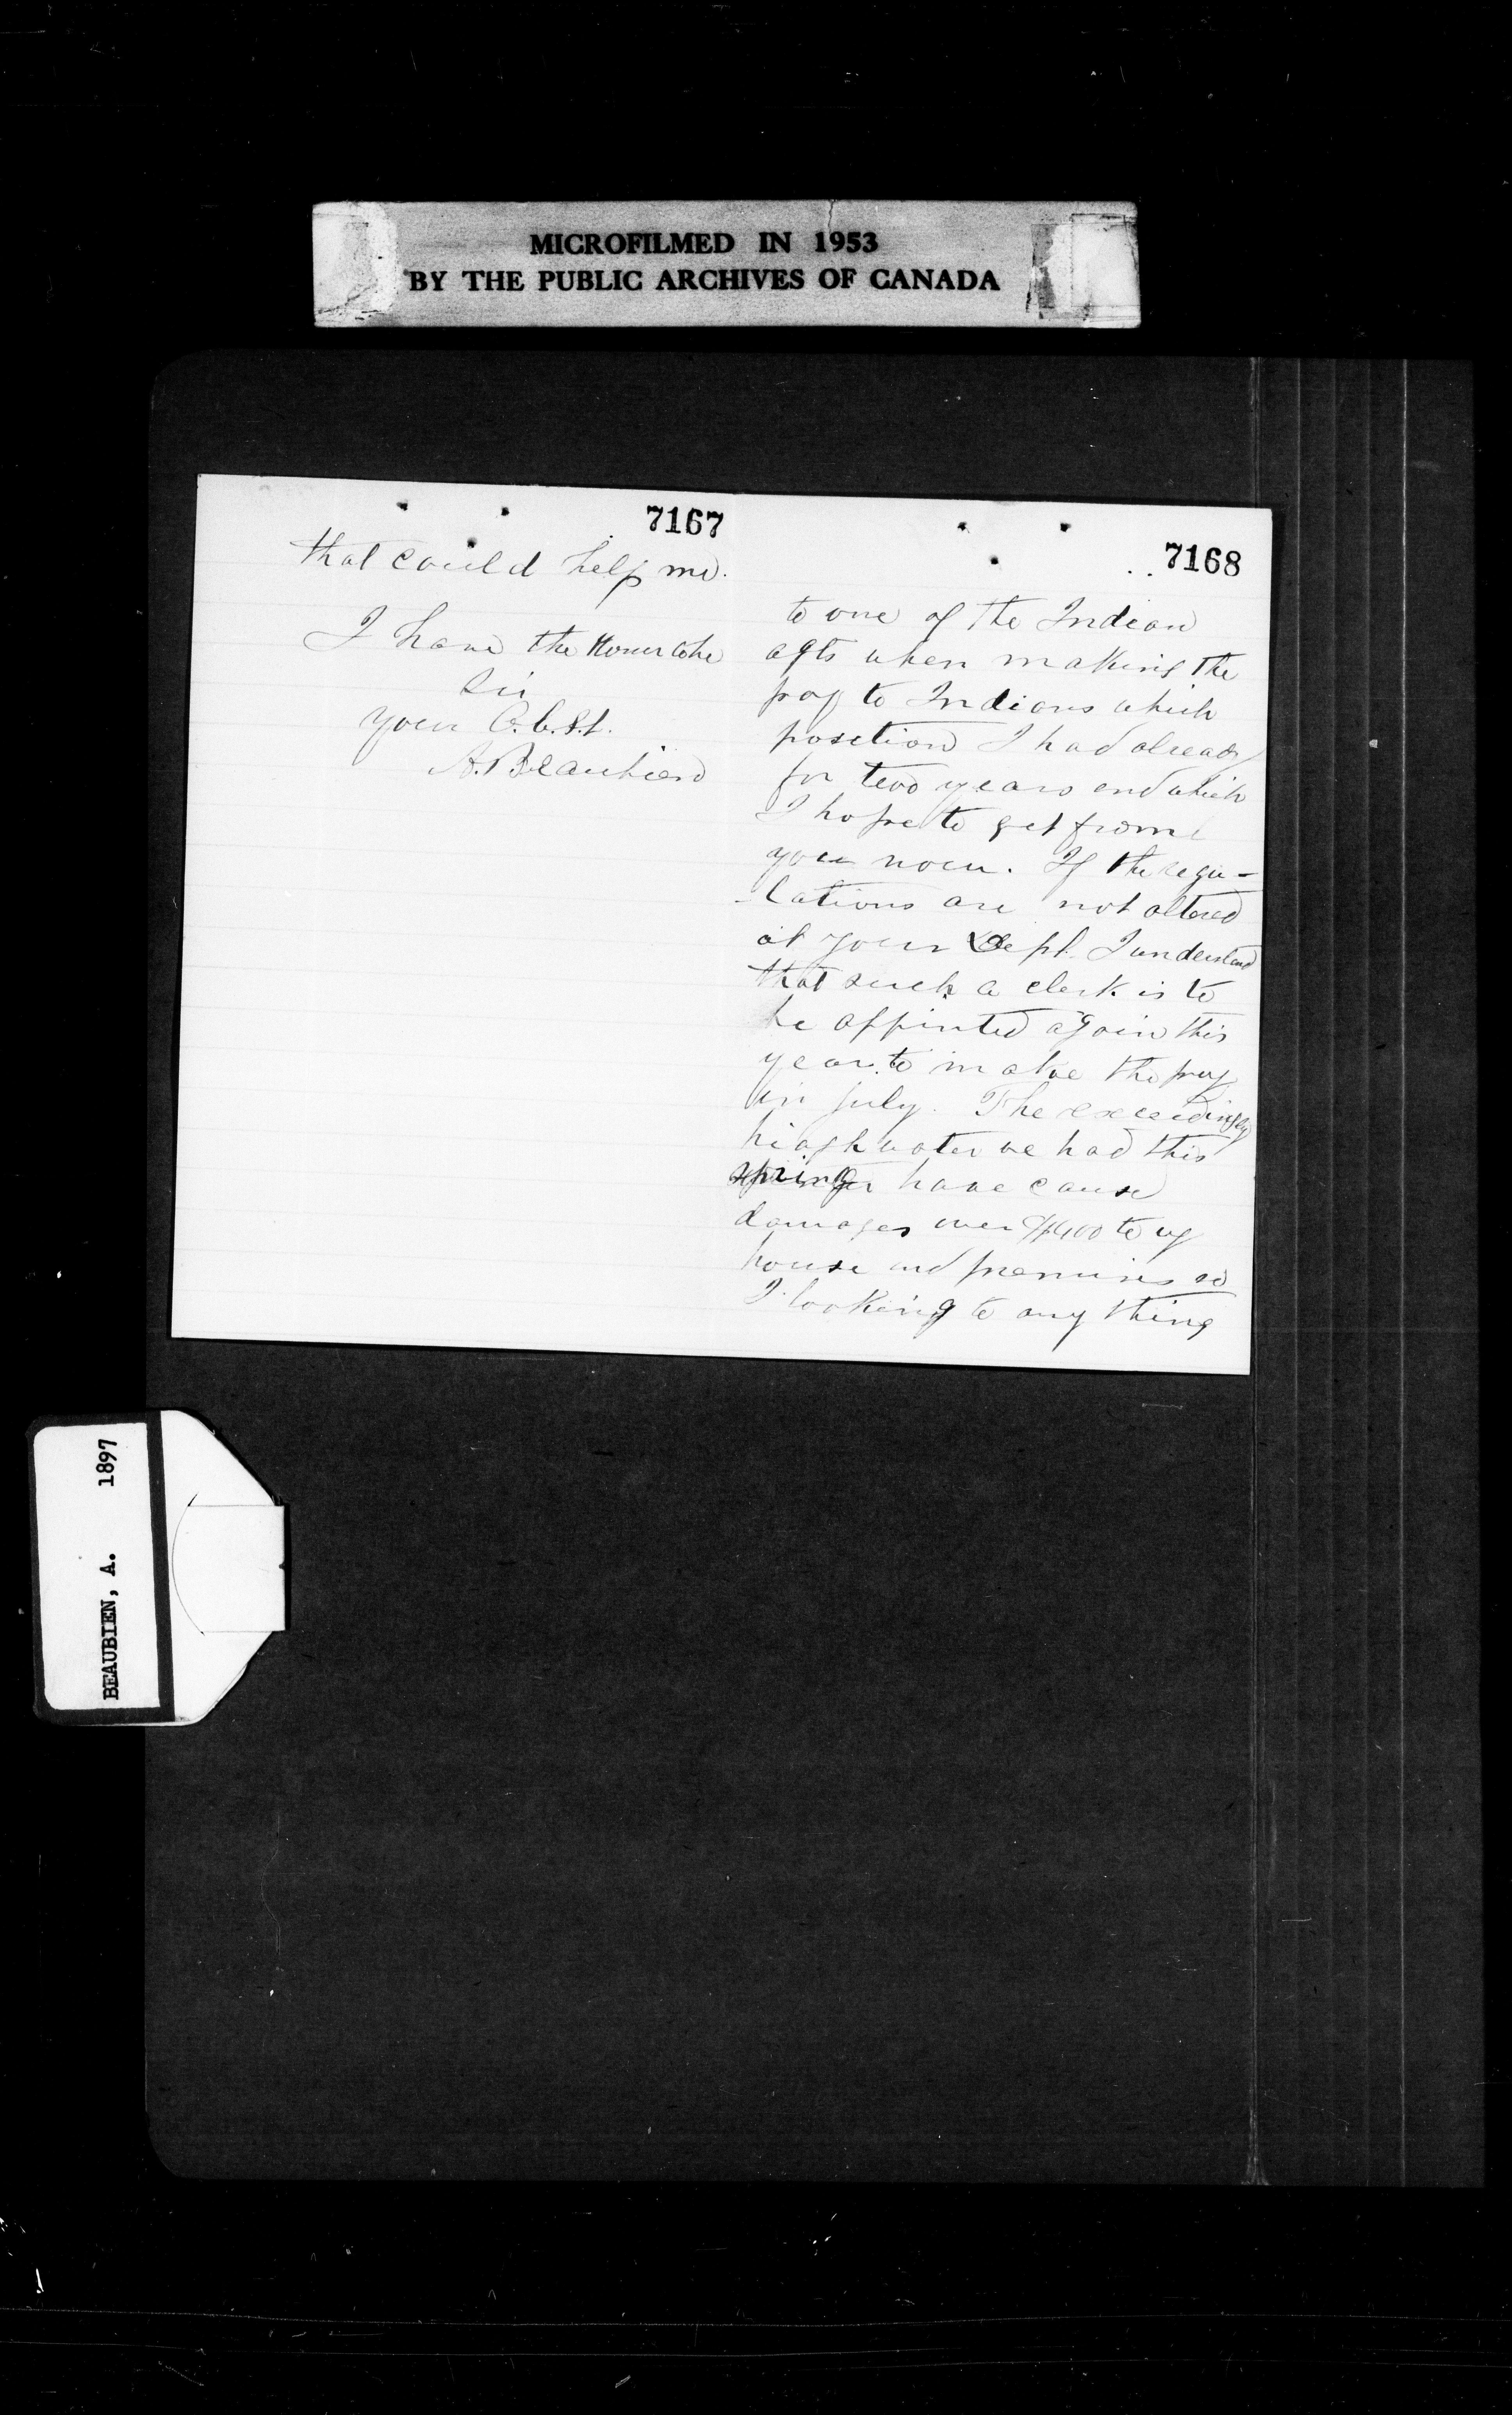 MICROFILMED IN 1953
BY THE PUBLIC ARCHIVES OF CANADA
7167
that could help me.
I have the Honor to be
Sir
your O.b.S.t.
A. Beaubien
7168
to one of the Indian
agts when making the
pay to Indians which
position I had already
for two years and which
I hope to get from
you now. If the regu-
-lations are not altered
at your Dept. I understand
that such a clerk is to
be appinted again this
year to make the pay
in july. The exceedingly
hiagh water we had this
spring have cause
damages over to my
house and premises so
I looking to any thing
BEAUBIEN, A. 1897